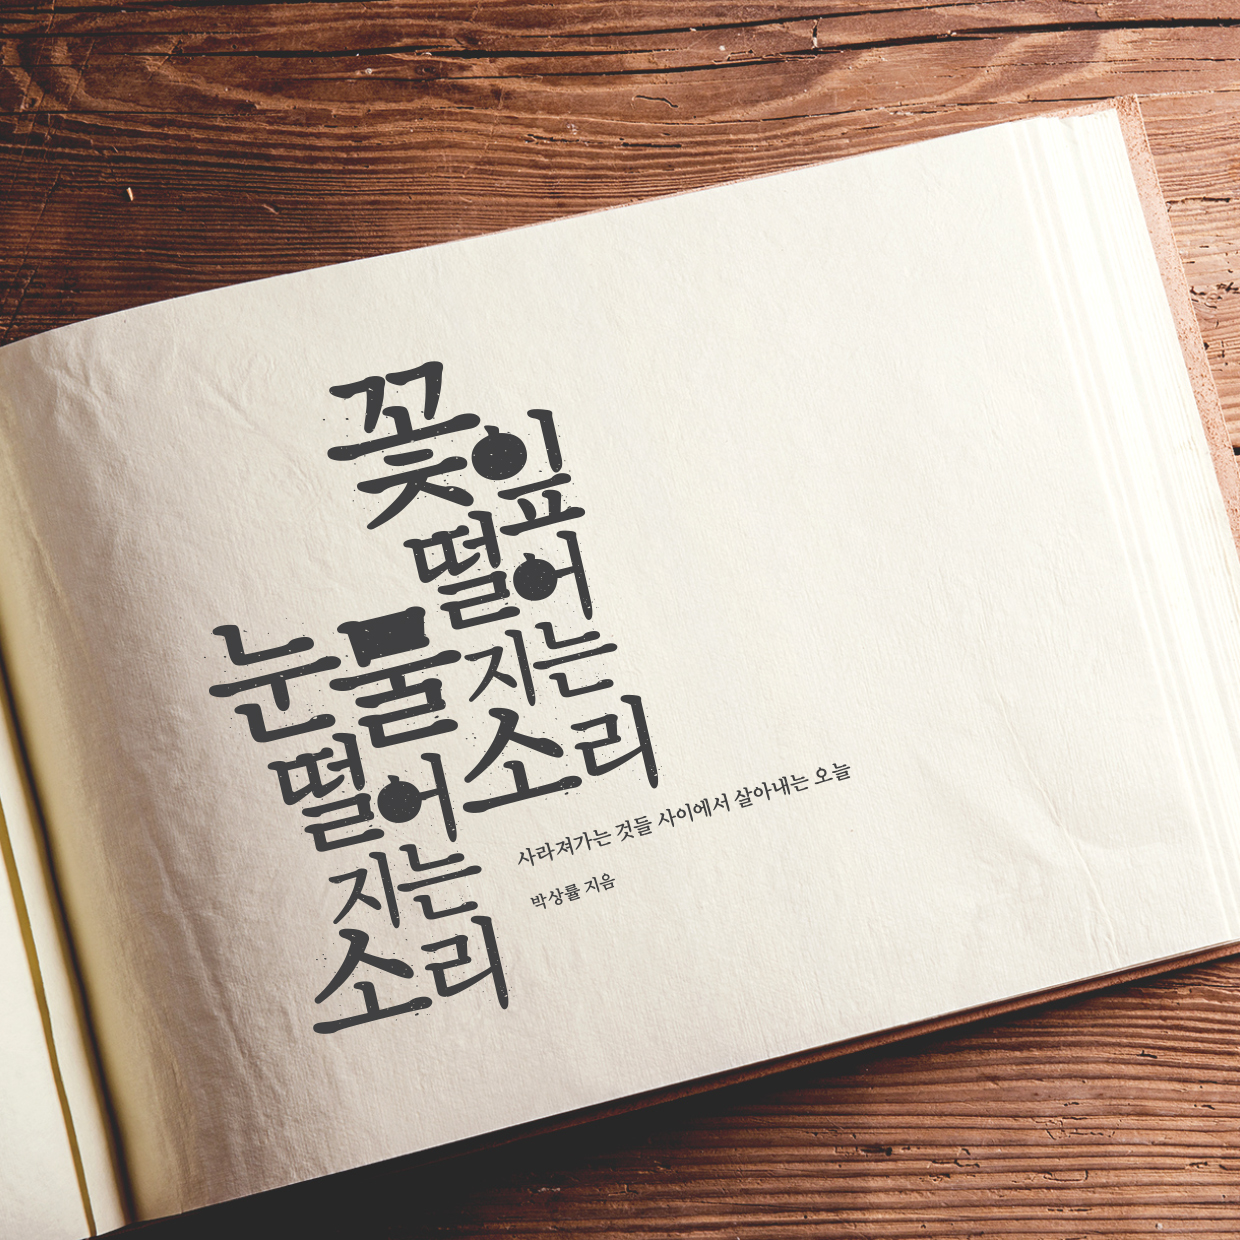 꽃잎
떨어
지는
소리
눈물
떨어
지는
소리
사라져가는 것들 사이에서 살아내는 오늘
박상률 지음